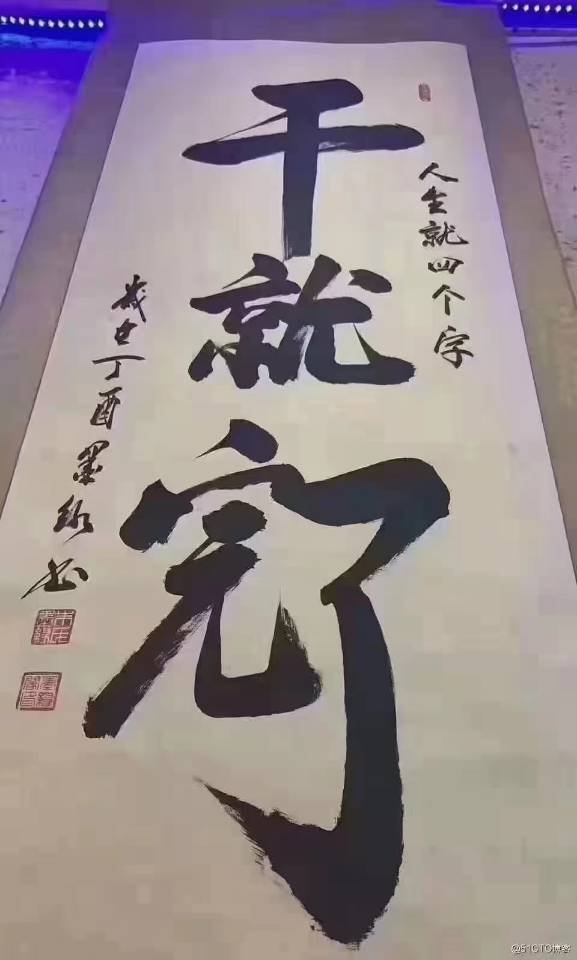 人生就四个字
干就完了
歲在丁酉墨缘书
@51CTO博客